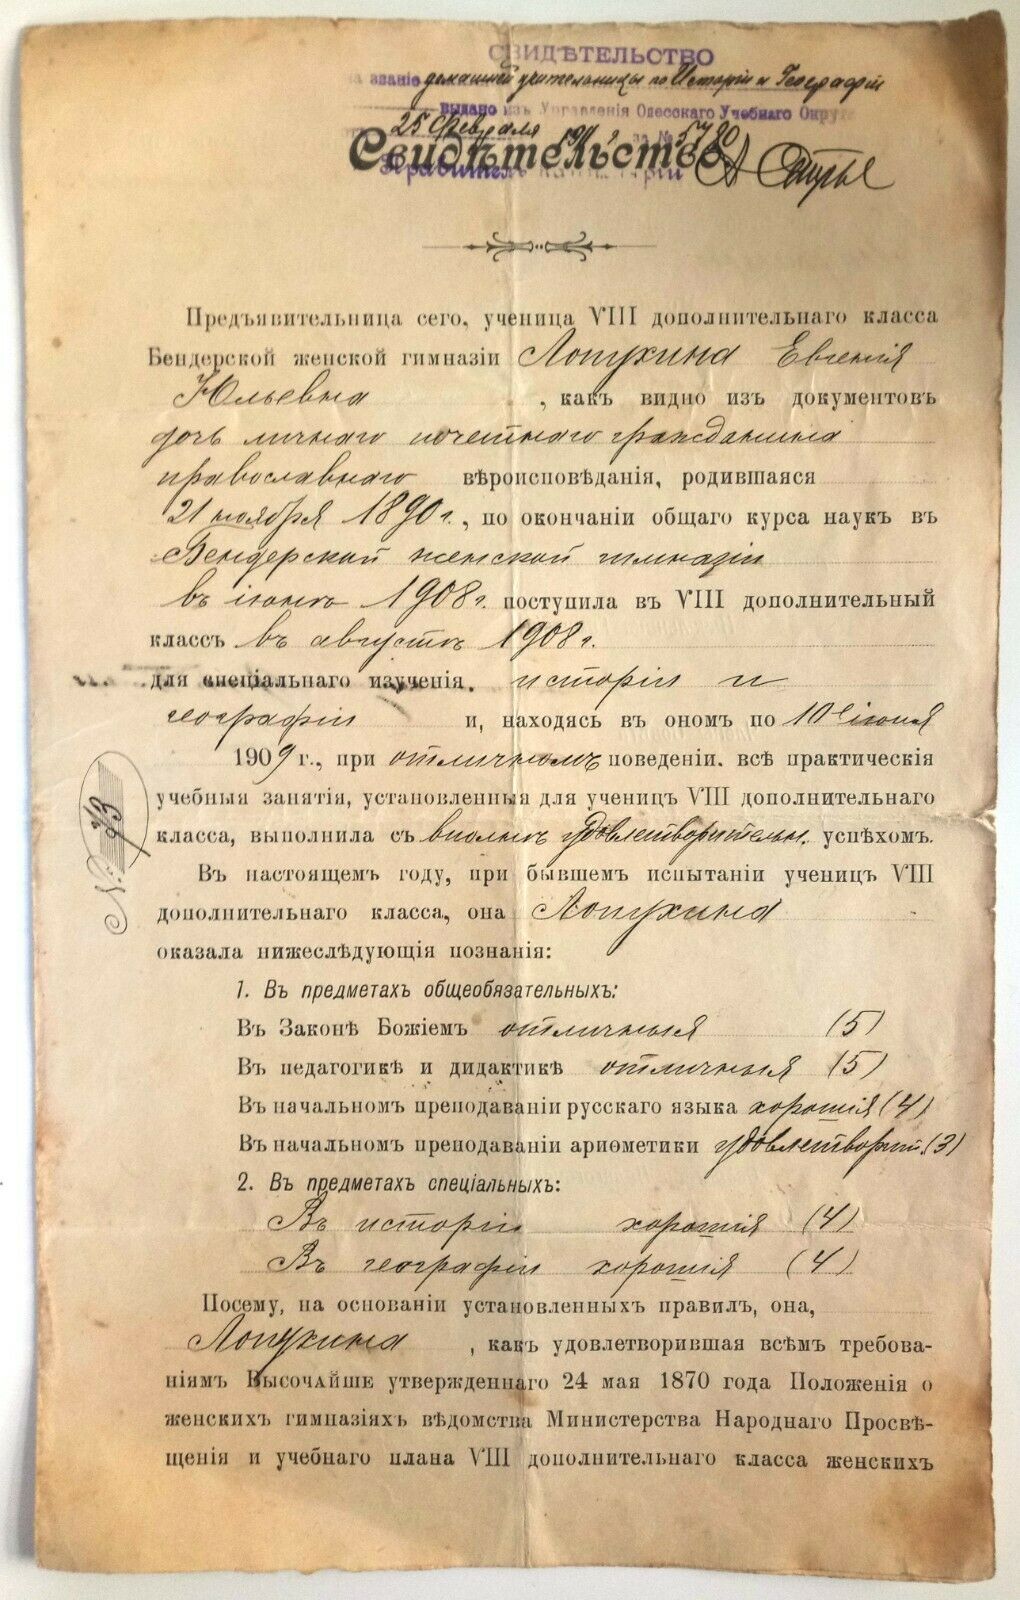 СВИДѢТЕЛЬСТВО
на званіе домашней учительницы по Исторіи и Географіи
выдано изъ Управленія Одесскаго Учебнаго Округа
25 Февраля 191 за № 5780
Свидѣтельство
Правитель Канцеляріи
Предъявительница сего, ученица VIII дополнительнаго класса
Бендерской женской гимназіи Лопухина Евгенія
Юльевна, какъ видно изъ документовъ
дочь личнаго почетнаго гражданина
православнаго вѣроисповѣданія, родившаяся
21 ноября 1890 г., по окончаніи общаго курса наукъ въ
Бендерской женской гимназіи
въ іюнѣ 1908 г. поступила въ VIII дополнительный
классъ въ августѣ 1908 г.
для спеціальнаго изученія. исторіи и
географіи и, находясь въ ономъ по 10е іюня
1909 г., при отличномъ поведеніи. всѣ практическія
учебныя занятія, установленныя для ученицъ VIII дополнительнаго
класса, выполнила съ вполнѣ удовлетворительн. успѣхомъ.
№ 73
Въ настоящемъ году, при бывшемъ испытаніи ученицъ VIII
дополнительнаго класса, она Лопухина
оказала нижеслѣдующія познанія:
1. Въ предметахъ общеобязательныхъ:
Въ Законѣ Божіемъ отличныя (5)
Въ педагогикѣ и дидактикѣ отличныя (5)
Въ начальномъ преподаваніи русскаго языка хорошія (4)
Въ начальномъ преподаваніи ариѳметики удовлетворит. (3)
2. Въ предметахъ спеціальныхъ:
Въ исторіи хорошія (4)
Въ географіи хорошія (4)
Посему, на основаніи установленныхъ правилъ, она,
Лопухина, какъ удовлетворившая всѣмъ требова-
ніямъ Высочайше утвержденнаго 24 мая 1870 года Положенія о
женскихъ гимназіяхъ вѣдомства Министерства Народнаго Просвѣ-
щенія и учебнаго плана VIII дополнительнаго класса женскихъ